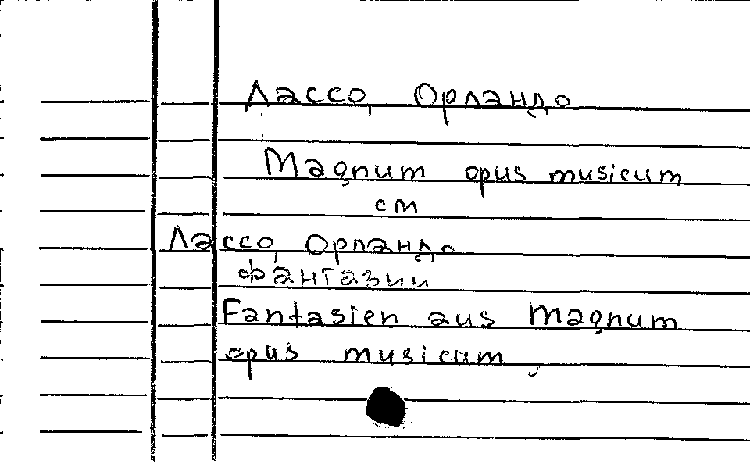 Лассо, Орландо
Magnum opus musicum
см
Лассо, Орландо
фантазии
Fantasien aus Magnum
opus musicum.